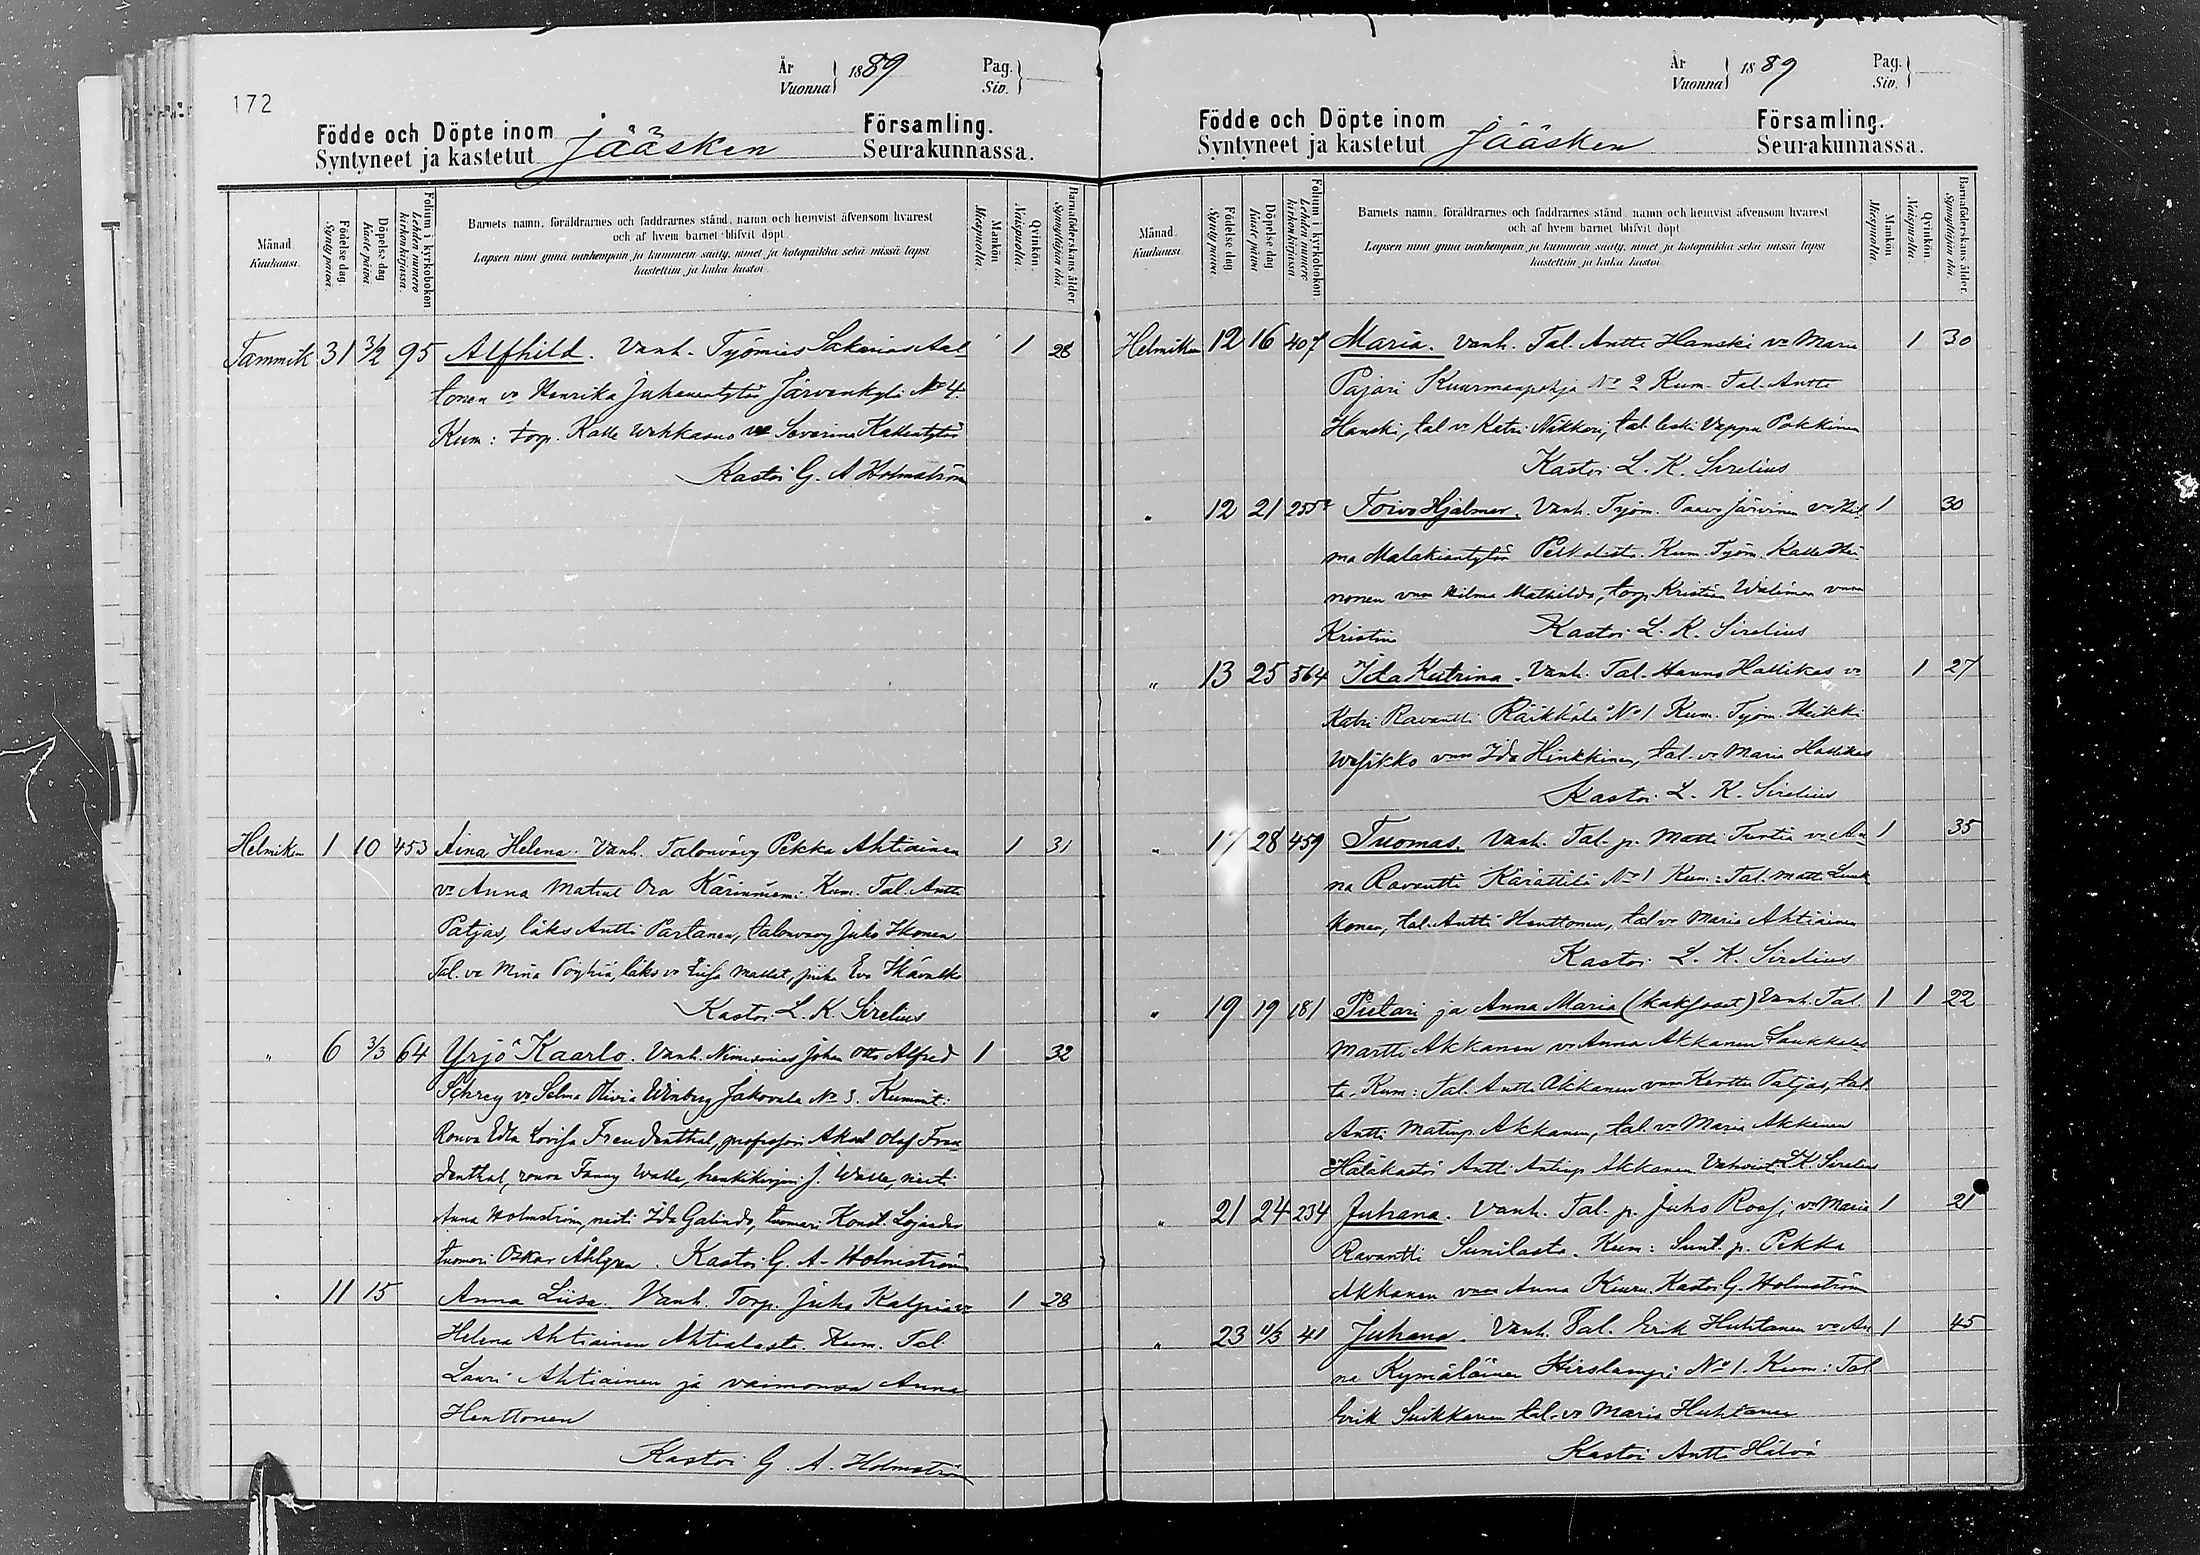 172
År
Vuonna 1889
Pag.
Siv.
Födde och Döpte inom
Syntyneet ja kastetut Jääsken
Församling.
Seurakunnassa.
Månad.
Kuukausi.
Födelse dag
Synty päivä.
Döpelse dag
Kaste päivä
Folium i kyrkobokon
Lehden numero
kirkonkirjassa.
Barnets namn, föräldrarnes och faddrarnes stånd, namn och hemvist äfvensom hvarest
och af hvem barnet blifvit döpt.
Lapsen nimi ynnä vanhempain ja kummein sääty, nimet ja kotopaikka sekä missä lapsi
kastettiin ja kuka kastoi
Mankön
Miespuolia.
Qvinkön.
Naispuolia.
Barnaföderskans ålder
Synnyttäjän ikä.
Tammik 31 3/2 95 Alfhild. Vanh. Työmies Sakarias Aal 1 28
tonen vo Henrika Juhanentytär Järvenkylä No 4.
Kum: torp. Kalle Wehkasuo vo Severina Kallentytär
Kastoi G. A Holmström
Helmikn 1 10 453 Aina Helena. Vanh. Talonvävy Pekka Ahtiainen 1 31
vo Anna Ora Kärinniemi. Kum. Tal. Antti
Patjas, läks Antti Partanen, talonvävy Juho Ikonen
Tal. vo Mina Pöyhiä, läks vo Eva
Kastoi L. K. Sirelius
" 6 3/3 64 Yrjö Kaarlo. Vanh. Nimismies Johan Otto Alfred 1 32
Schrey vo Selma Olivia Winberg Jakovala No 3. Kummit:
Rouva Edla Lovisa Freudenthal, professori Aksel Olof Freu
denthal, rouva Fanny Walle, henkikirjuri J. Walle, neiti
Anna Holmström, neiti Ida Galindo, tuomari Konst. Lojander
tuomari Oskar Åhlgren. Kastoi G. A. Holmström
" 11 15 Anna Liisa. Vanh. Torp. Juho Katpia vo 1 28
Helena Ahtiainen Ahtialasta. Kum. Tal.
Lauri Ahtiainen ja vaimonsa Anna
Henttonen
Kastoi G. A. Holmström
År
Vuonna 1889
Pag.
Siv.
Födde och Döpte inom
Syntyneet ja kastetut Jääsken
Församling.
Seurakunnassa.
Månad.
Kuukausi.
Födelse dag
Synty päivä.
Döpelse dag
Kaste päivä
Folium i kyrkobokon
Lehden numero
kirkonkirjassa.
Barnets namn, föräldrarnes och faddrarnes stånd, namn och hemvist äfvensom hvarest
och af hvem barnet blifvit döpt.
Lapsen nimi ynnä vanhempain ja kummein sääty, nimet ja kotopaikka sekä missä lapsi
kastettiin ja kuka kastoi
Mankön
Miespuolia.
Qvinkön.
Naispuolia.
Barnaföderskans ålder.
Synnyttäjän ikä.
Helmikun 12 16 407 Maria. Vanh. Tal. Antti Hanski vo Maria 1 30
Pajari Kuurmanpohja No 2 Kum. Tal. Antti
Hanski, tal vo Katri Nikkari, tal. leski Vappu Pokkinen
Kastoi L. K. Sirelius
" 12 21 Toivo Hjalmar. Vanh. Työm. Paavo Järvinen vo Hel 1 30
ma Malakiantytär Kum. Työm. Kalle Hei
nonen vmo Hilma Mathilda, torp Kristian Wäliman vmo
Kristina Kastoi L. K. Sirelius
" 13 25 564 Ida Katrina. Vanh. Tal. Hannu Hallikas vo 1 27
Katri Ravantti Räikkölä No 1 Kum. Työm. Heikki
Wesikko vmo Ida Hinkkinen, tal. vo Maria Hallikas
Kastoi L. K. Sirelius
" 17 28 459 Tuomas. Vanh. Tal. p. Matti Turtia vo An 1 35
na Ravantti Kärättilä No 1 Kum: Tal. Matti Luuk
konen, tal. Antti Henttonen, tal vo Maria Ahtiainen
Kastoi L. K. Sirelius
" 19 19 181 Pietari ja Anna Maria (kaksoset) Vanh. Tal. 1 1 22
Martti Akkanen vo Anna Akkanen Laukkalas
ta. Kum: Tal. Antti Akkanen vmo Kerttu Patjas, tal.
Antti Matinp. Akkanen, tal. vo Maria Akkanen
Hätäkastoi Antti Antinp Akkanen Vahvisti L. K. Sirelius
" 21 24 234 Juhana. Vanh. Tal. p. Juho Roosi vo Maria 1 21
Ravantti Sunilasta. Kum: Sunt. p. Pekka
Akkanen vmo Anna Kiuru. Kastoi G. Holmström
" 23 4/3 41 Juhana. Vanh. Tal. Erik Huhtanen vo An 1 45
na Kymäläinen Hirslampi No 1. Kum: Tal
Erik Suikkanen tal. vo Maria Huhtanen
Kastoi Antti Hälvä